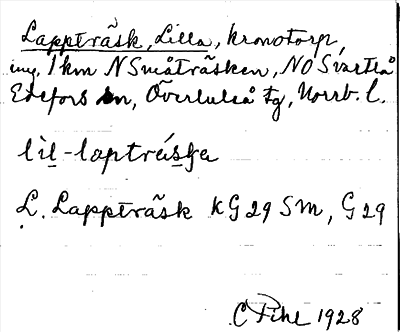 Lappträsk, Lilla, kronotorp,
1 km N Småträsken, NO Svartlå
Edefors sn, Överluleå tg, Norrb. l.
lìl-laptráska
L. Lappträsk KG 29 SM, G 29
C Pihl 1928